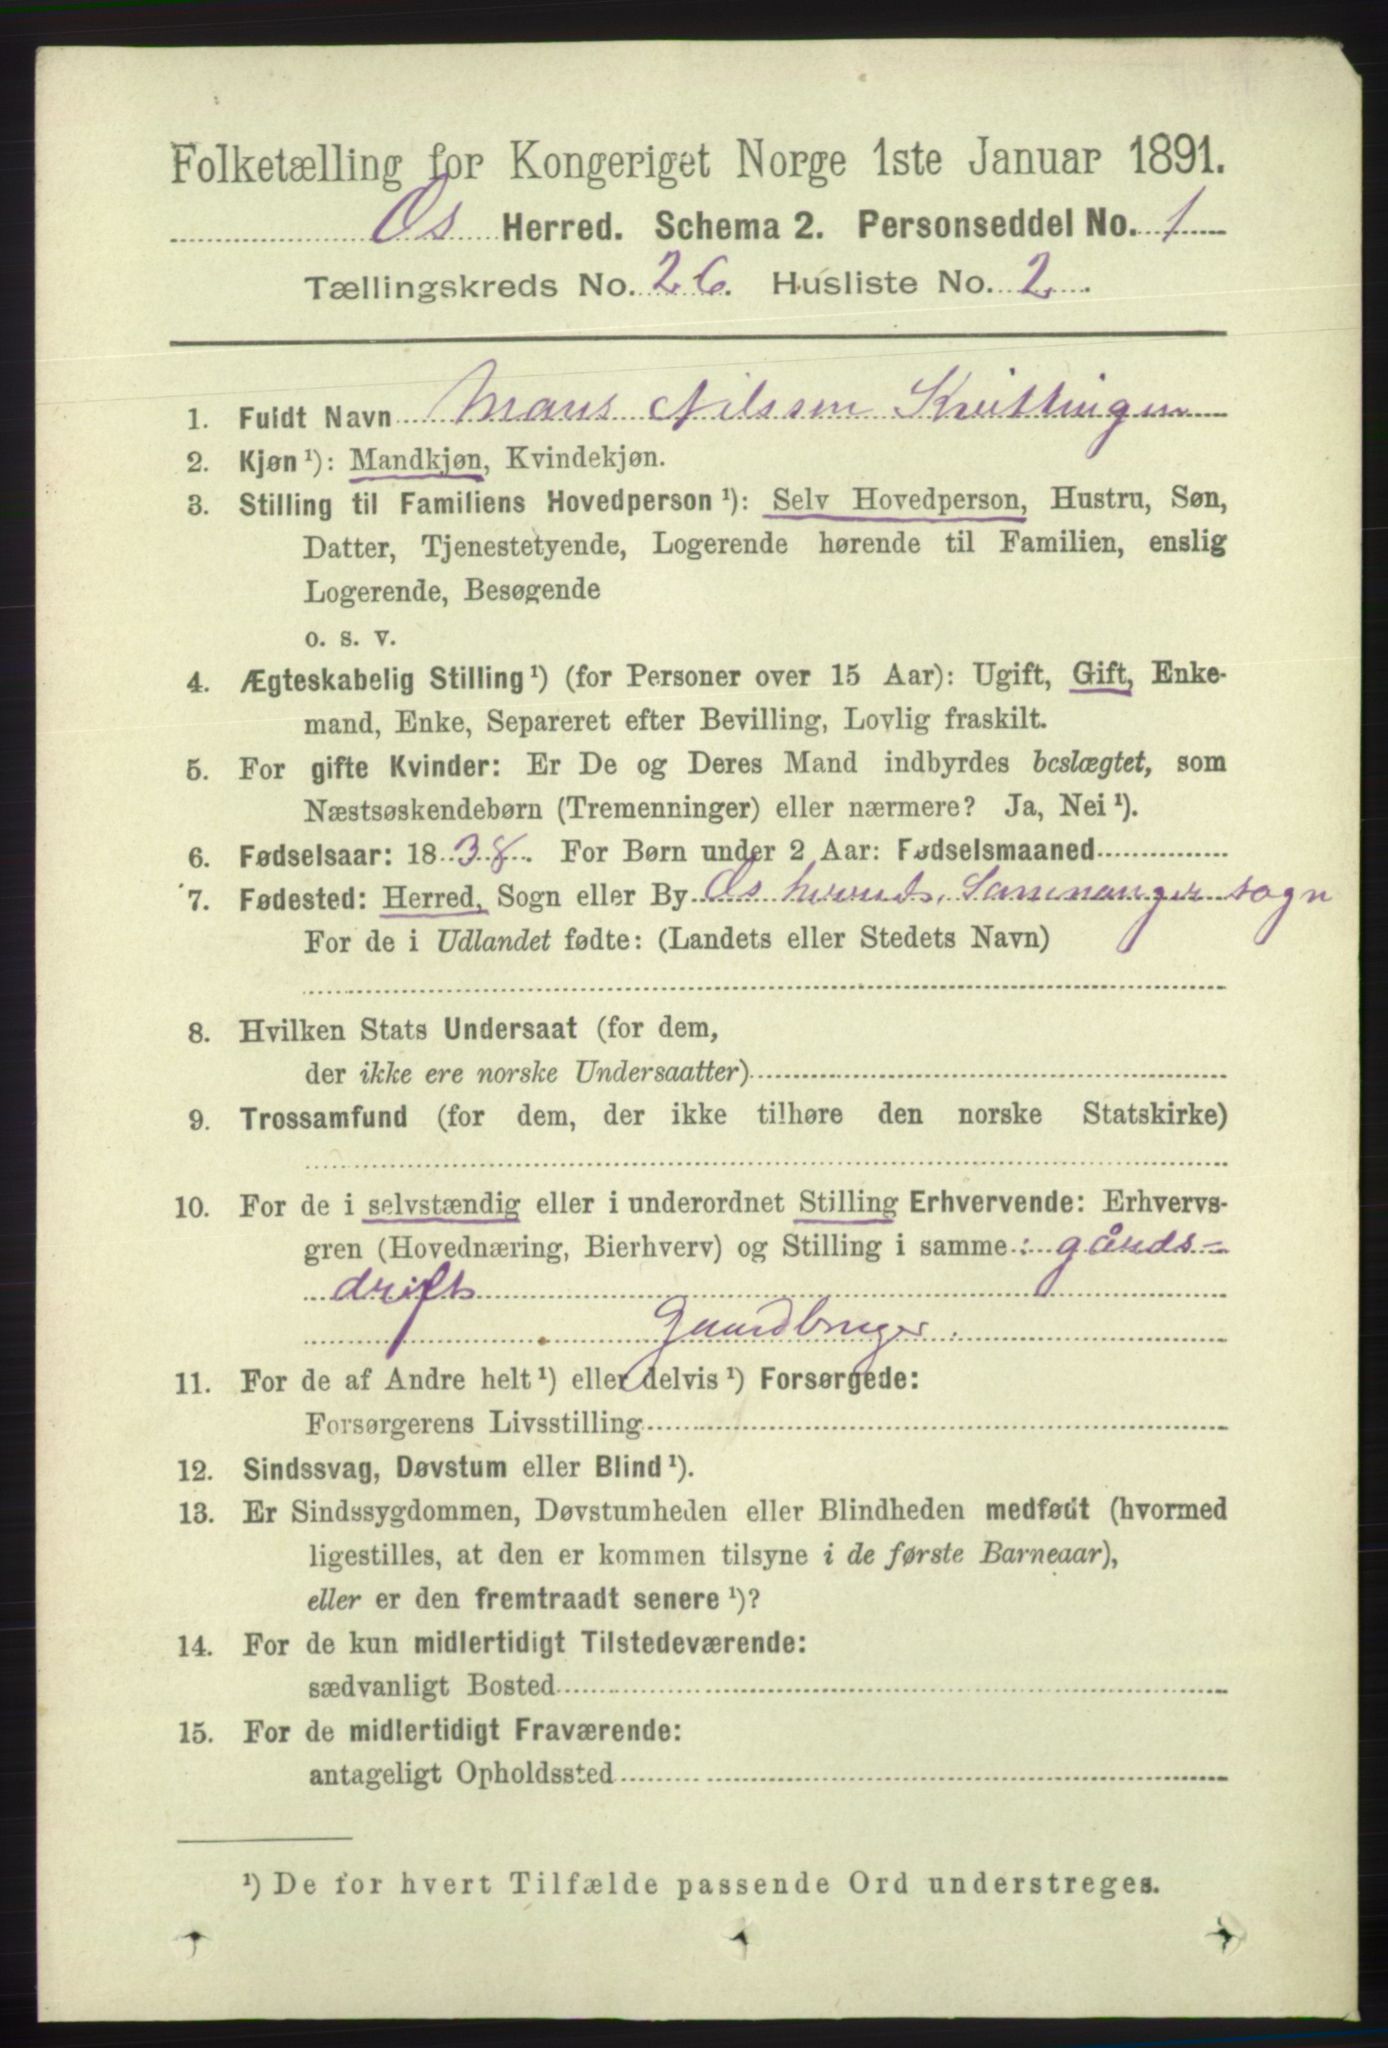 Folketælling for Kongeriget Norge 1ste Januar 1891.
Os Herred. Schema 2. Personseddel No. 1
Tællingskreds No. 26. Husliste No. 2.
1. Fuldt Navn Mons Nilssen Kvitlingen
2. Kjøn¹): Mandkjøn, Kvindekjøn.
3. Stilling til Familiens Hovedperson¹): Selv Hovedperson, Hustru, Søn,
Datter, Tjenestetyende, Logerende hørende til Familien, enslig
Logerende, Besøgende
o. s. v.
4. Ægteskabelig Stilling¹) (for Personer over 15 Aar): Ugift, Gift, Enke-
mand, Enke, Separeret efter Bevilling, Lovlig fraskilt.
5. For gifte Kvinder: Er De og Deres Mand indbyrdes beslægtet, som
Næstsøskendebørn (Tremenninger) eller nærmere? Ja, Nei¹).
6. Fødselsaar: 1838. For Børn under 2 Aar: Fødselsmaaned
7. Fødested: Herred, Sogn eller By Os herred, Samnanger sogn
For de i Udlandet fødte: (Landets eller Stedets Navn)
8. Hvilken Stats Undersaat (for dem,
der ikke ere norske Undersaatter)
9. Trossamfund (for dem, der ikke tilhøre den norske Statskirke)
10. For de i selvstændig eller i underordnet Stilling Erhvervende: Erhvervs-
gren (Hovednæring, Bierhverv) og Stilling i samme: gårds-
drift
Gaardbruger.
11. For de af Andre helt¹) eller delvis¹) Forsørgede:
Forsørgerens Livsstilling
12. Sindssvag, Døvstum eller Blind¹).
13. Er Sindssygdommen, Døvstumheden eller Blindheden medfødt (hvormed
ligestilles, at den er kommen tilsyne i de første Barneaar),
eller er den fremtraadt senere¹)?
14. For de kun midlertidigt Tilstedeværende:
sædvanligt Bosted
15. For de midlertidigt Fraværende:
antageligt Opholdssted
¹) De for hvert Tilfælde passende Ord understreges.